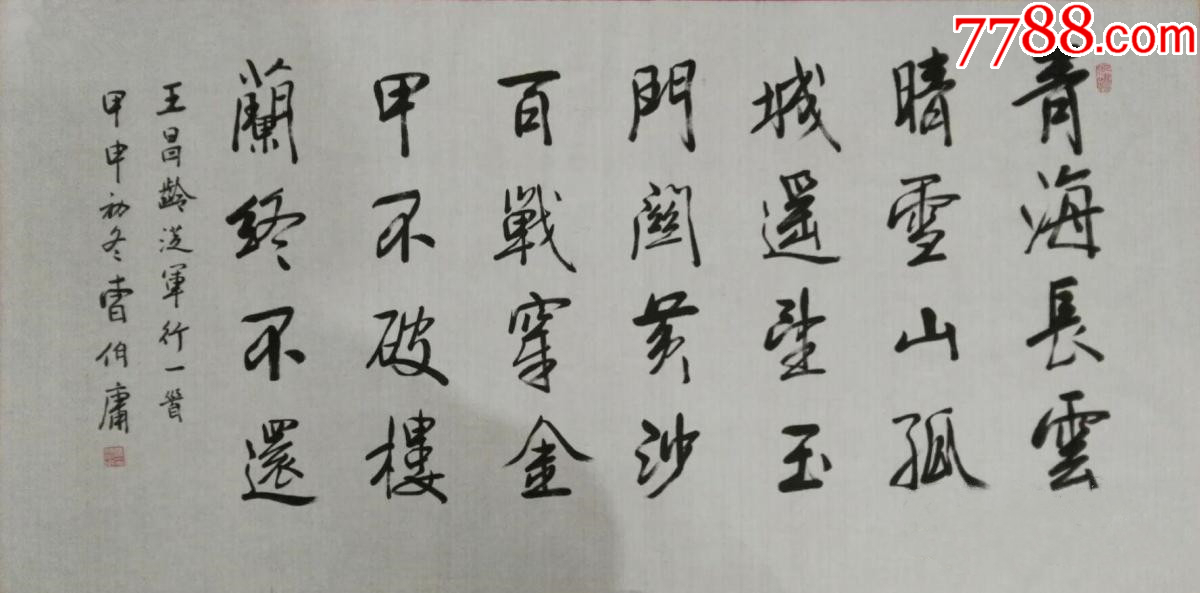 7788.com
青海長雲
晴雪山孤
城遥望玉
門關黄沙
百戰穿金
甲不破樓
蘭終不還
王昌齡從軍行一首
甲申初冬曹伯庸